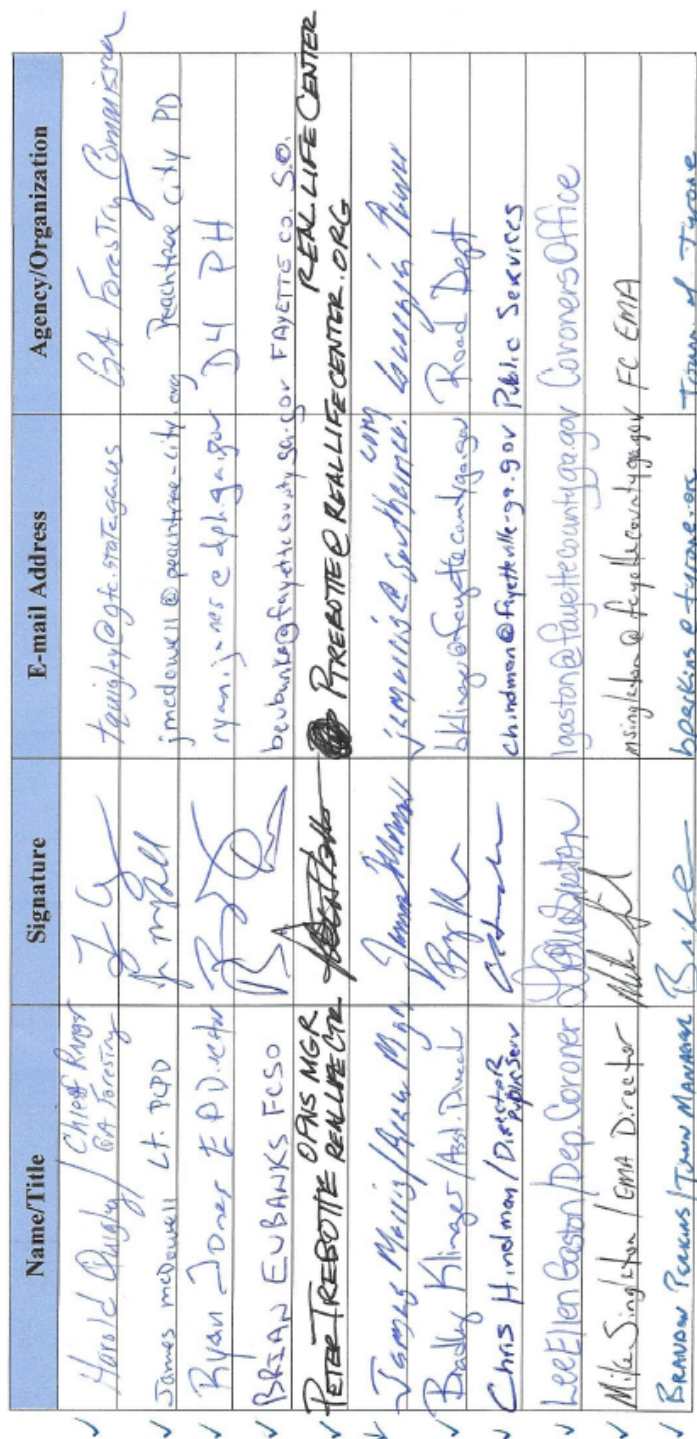 Name/Title Signature E-mail Address Agency/Organization
Harold Quigley / Chief Ranger GA Forestry tquigley@gfc.state.ga.us GA Forestry Commission
James McDowell Lt. PCPD jmcdowell@peachtree-city.org Peachtree City PD
Ryan Jones EP Director ryan.jones@dph.ga.gov D4 PH
BRIAN EUBANKS FCSO beubanks@fayettecountyga.gov FAYETTE CO. S.O.
PETER TREBOTTE OPNS MGR REAL LIFE CTR PTREBOTTE@REALLIFECENTER.ORG REAL LIFE CENTER
James Morris/Area Mgr jamorris@southernco.com Georgia Power
Bradley Klinger/Asst. Director bklinger@fayettecountyga.gov Road Dept
Chris Hindman/Director Public Serv chindman@fayetteville-ga.gov Public Services
LeeEllen Gaston/Dep. Coroner lgaston@fayettecountyga.gov Coroners Office
Mike Singleton / EMA Director msingleton@fayettecountyga.gov FC EMA
BRANDON PERKINS/TOWN MANAGER bperkins@tyrone.org Town of Tyrone